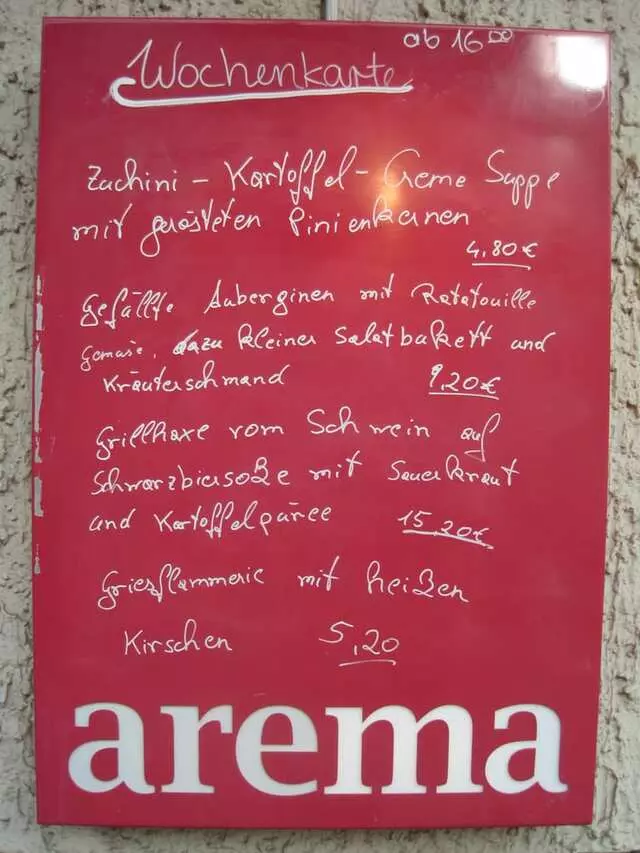 ab 16 00
Wochenkarte
Zuchini - Kartoffel - Creme Suppe
mit gerösteten Pinienkernen
4,80 €
Gefüllte Auberginen mit Ratatouille
Gemüse, dazu kleiner Salatbukett und
Kräuterschmand 9,20 €
Grillhaxe vom Schwein auf
Schwarzbiersoße mit Sauerkraut
und Kartoffelpüree 15,20 €
Griesflammerie mit heißen
Kirschen 5,20
arema